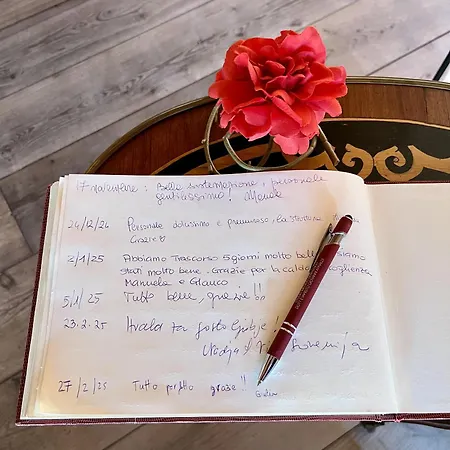 17 novembre: Bella sistemazione, personale
gentilissimo!
24/12/24 Personale dolcissimo e premuroso, la struttura
Grazie
2/1/25 Abbiamo Trascorso 5 giorni molto belli siamo
stati molto bene. Grazie per la calda accoglienza
Manuela e Glauco
5/1/25 Tutto bene, grazie!!
23.2.25 Hvala za gostoljubje!
Nadja Slovenija
27/2/25 Tutto perfetto grazie!!